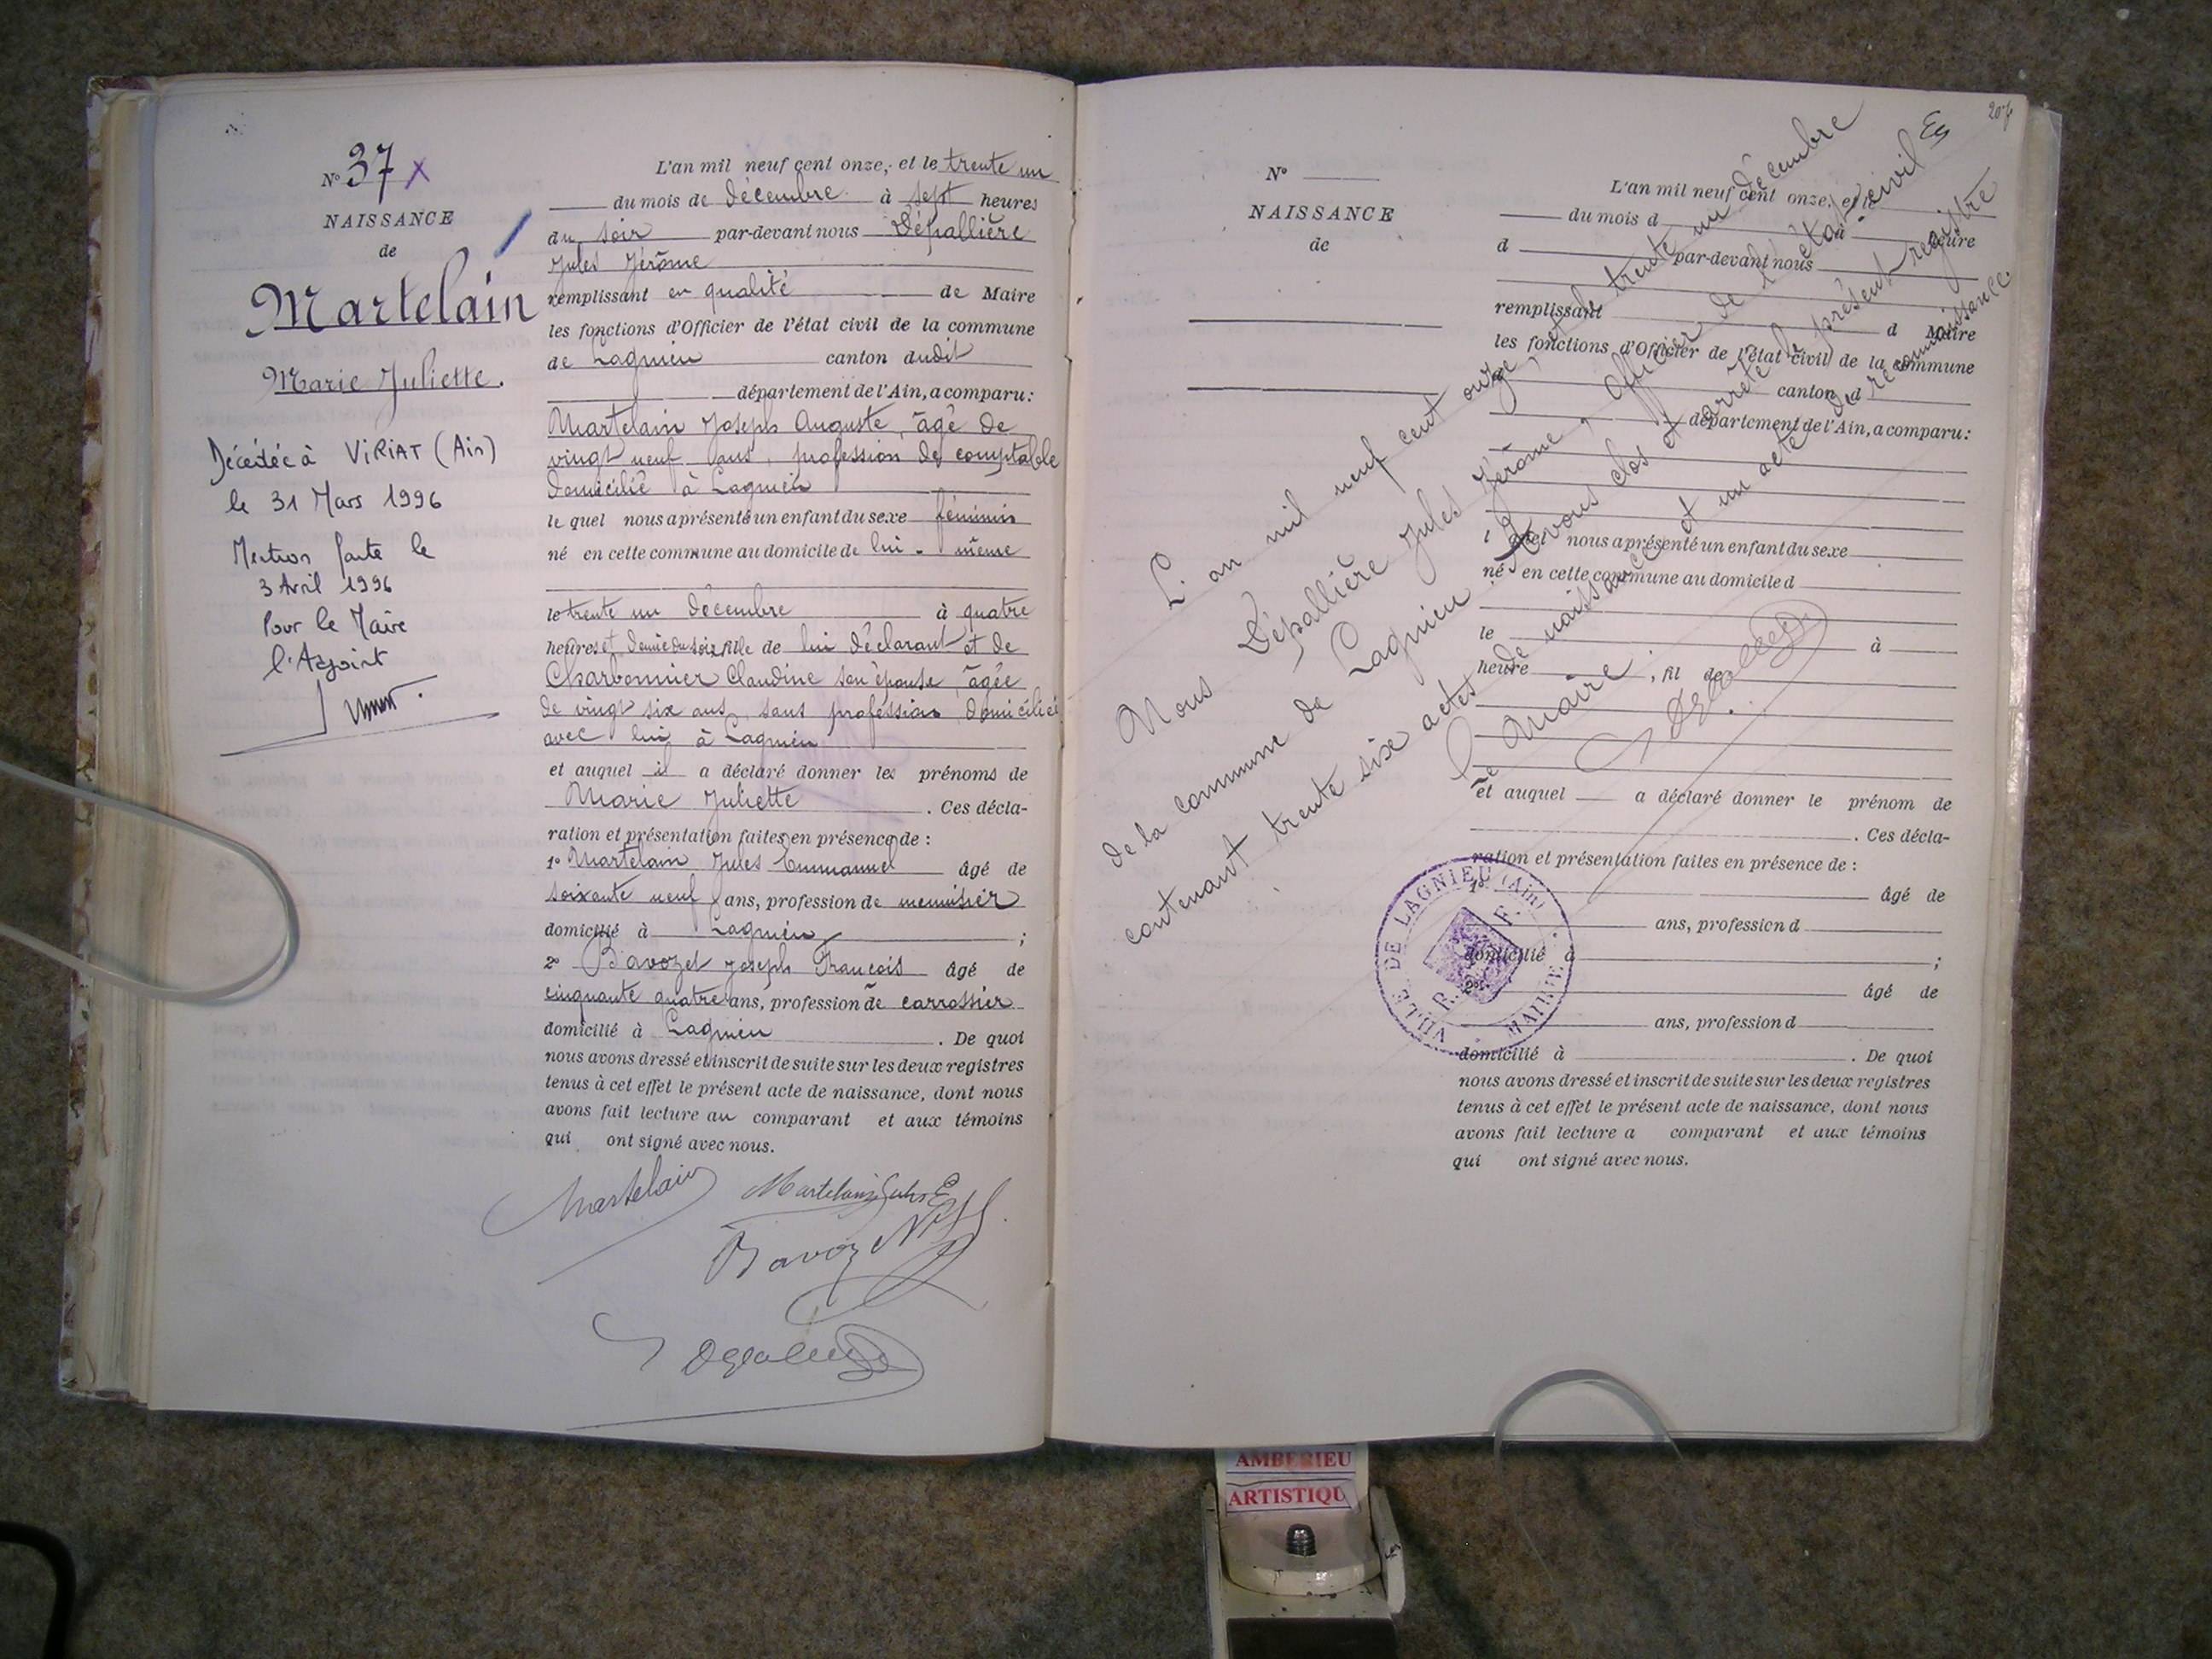 N° 37 X
NAISSANCE
de
Martelain
Marie Juliette.
Décédée à VIRIAT (Ain)
le 31 Mars 1996
Mention faite le
3 Avril 1996
Pour le Maire
l'Adjoint
L'an mil neuf cent onze, et le trente un
du mois de décembre à sept heures
du soir par-devant nous Dépallière
Jules Jérôme
remplissant en qualité de Maire
les fonctions d'Officier de l'état civil de la commune
de Lagnieu canton dudit
département de l'Ain, a comparu:
Martelain Joseph Auguste, âgé de
vingt neuf ans, profession de comptable
domicilié à Lagnieu
le quel nous a présenté un enfant du sexe féminin
né en cette commune au domicile de lui-même
le trente un décembre à quatre
heures et demie du soir, fille de lui déclarant et de
Charbonnier Claudine son épouse, âgée
de vingt six ans, sans profession domiciliée
avec lui à Lagnieu
et auquel il a déclaré donner les prénoms de
Marie Juliette . Ces décla-
ration et présentation faites en présence de :
1° Martelain Jules Emmanuel âgé de
soixante neuf ans, profession de menuisier
domicilié à Lagnieu ;
2° Bavozet Joseph François âgé de
cinquante quatre ans, profession de carrossier
domicilié à Lagnieu . De quoi
nous avons dressé et inscrit de suite sur les deux registres
tenus à cet effet le présent acte de naissance, dont nous
avons fait lecture au comparant et aux témoins
qui ont signé avec nous.
Martelain
Martelain Jules E
N°
NAISSANCE
de
L'an mil neuf cent onze, et le
du mois d à heure
d par-devant nous
remplissant d Maire
les fonctions d'Officier de l'état civil de la commune
de canton d
département de l'Ain, a comparu:
l quel nous a présenté un enfant du sexe
né en cette commune au domicile d
le à
heure , fil de
et auquel a déclaré donner le prénom de
. Ces décla-
ration et présentation faites en présence de :
1° âgé de
ans, profession d
domicilié à ;
2° âgé de
ans, profession d
domicilié à . De quoi
nous avons dressé et inscrit de suite sur les deux registres
tenus à cet effet le présent acte de naissance, dont nous
avons fait lecture a comparant et aux témoins
qui ont signé avec nous.
L'an mil neuf cent onze, et le trente un décembre
Nous Dépallière Jules Jérôme, officier de l'état-civil
de la commune de Lagnieu avons clos et arrêté le présent registre
contenant trente six actes de naissance et un acte de reconnaissance.
Le Maire
VILLE DE LAGNIEU (Ain)
MAIRIE
R. F.
AMBERIEU
ARTISTIQU